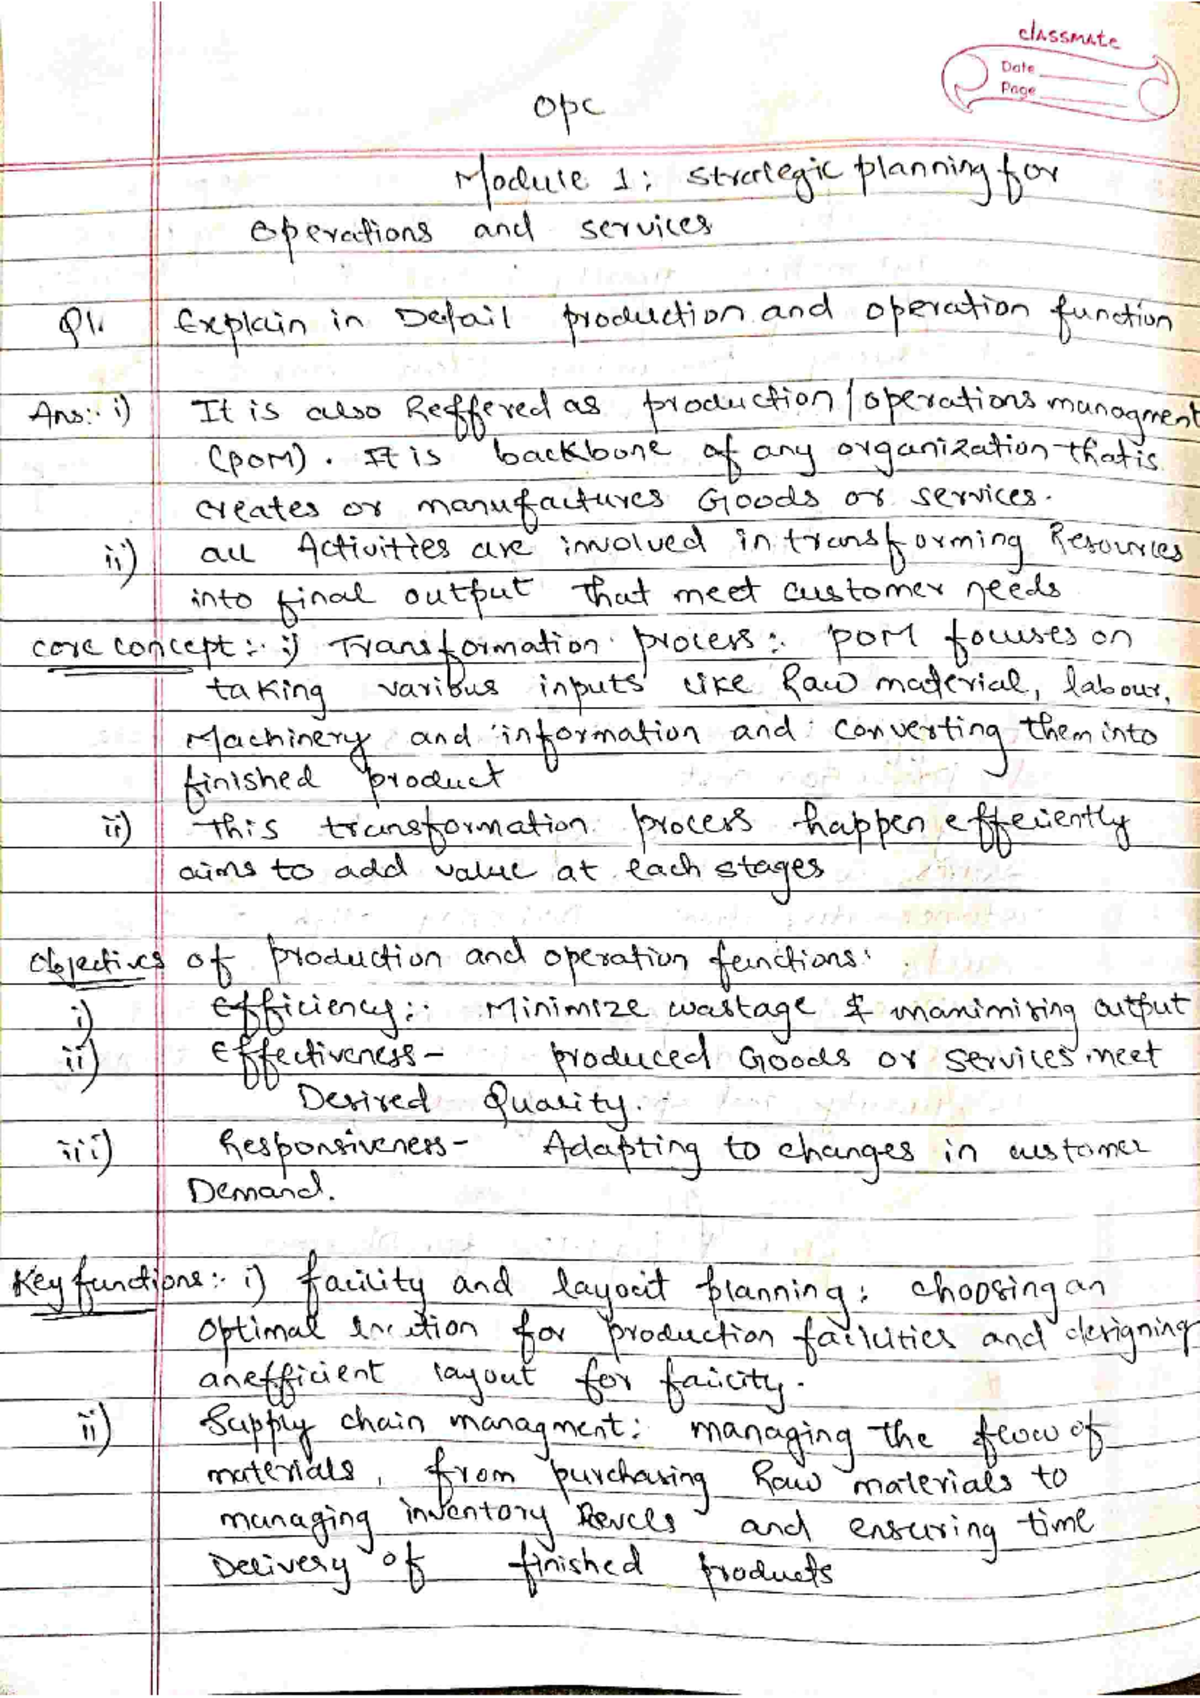 classmate
Date
Page
OPC
Module 1: Strategic planning for
operations and services
Q1. Explain in Detail production and operation function
Ans:- i) It is also Reffered as production/operations managment
(POM). It is backbone of any organization that is
creates or manufactures Goods or services.
ii) all Activities are involved in transforming Resources
into final output that meet customer needs
core concept:- i) Transformation process:- POM focuses on
taking various inputs like Raw material, labour,
Machinery and information and converting them into
finished product
ii) This transformation process happen efficiently
aims to add value at each stages
Objectives of production and operation functions:
i) Efficiency:- Minimize wastage & maximizing output
ii) Effectiveness- produced Goods or services meet
Desired Quality.
iii) Responsiveness- Adapting to changes in customer
Demand.
Key functions:- i) facility and layout planning: choosing an
optimal location for production facilities and designing
an efficient layout for facility.
ii) Supply chain managment: managing the flow of
materials, from purchasing Raw materials to
managing inventory levels and ensuring time
Delivery of finished products